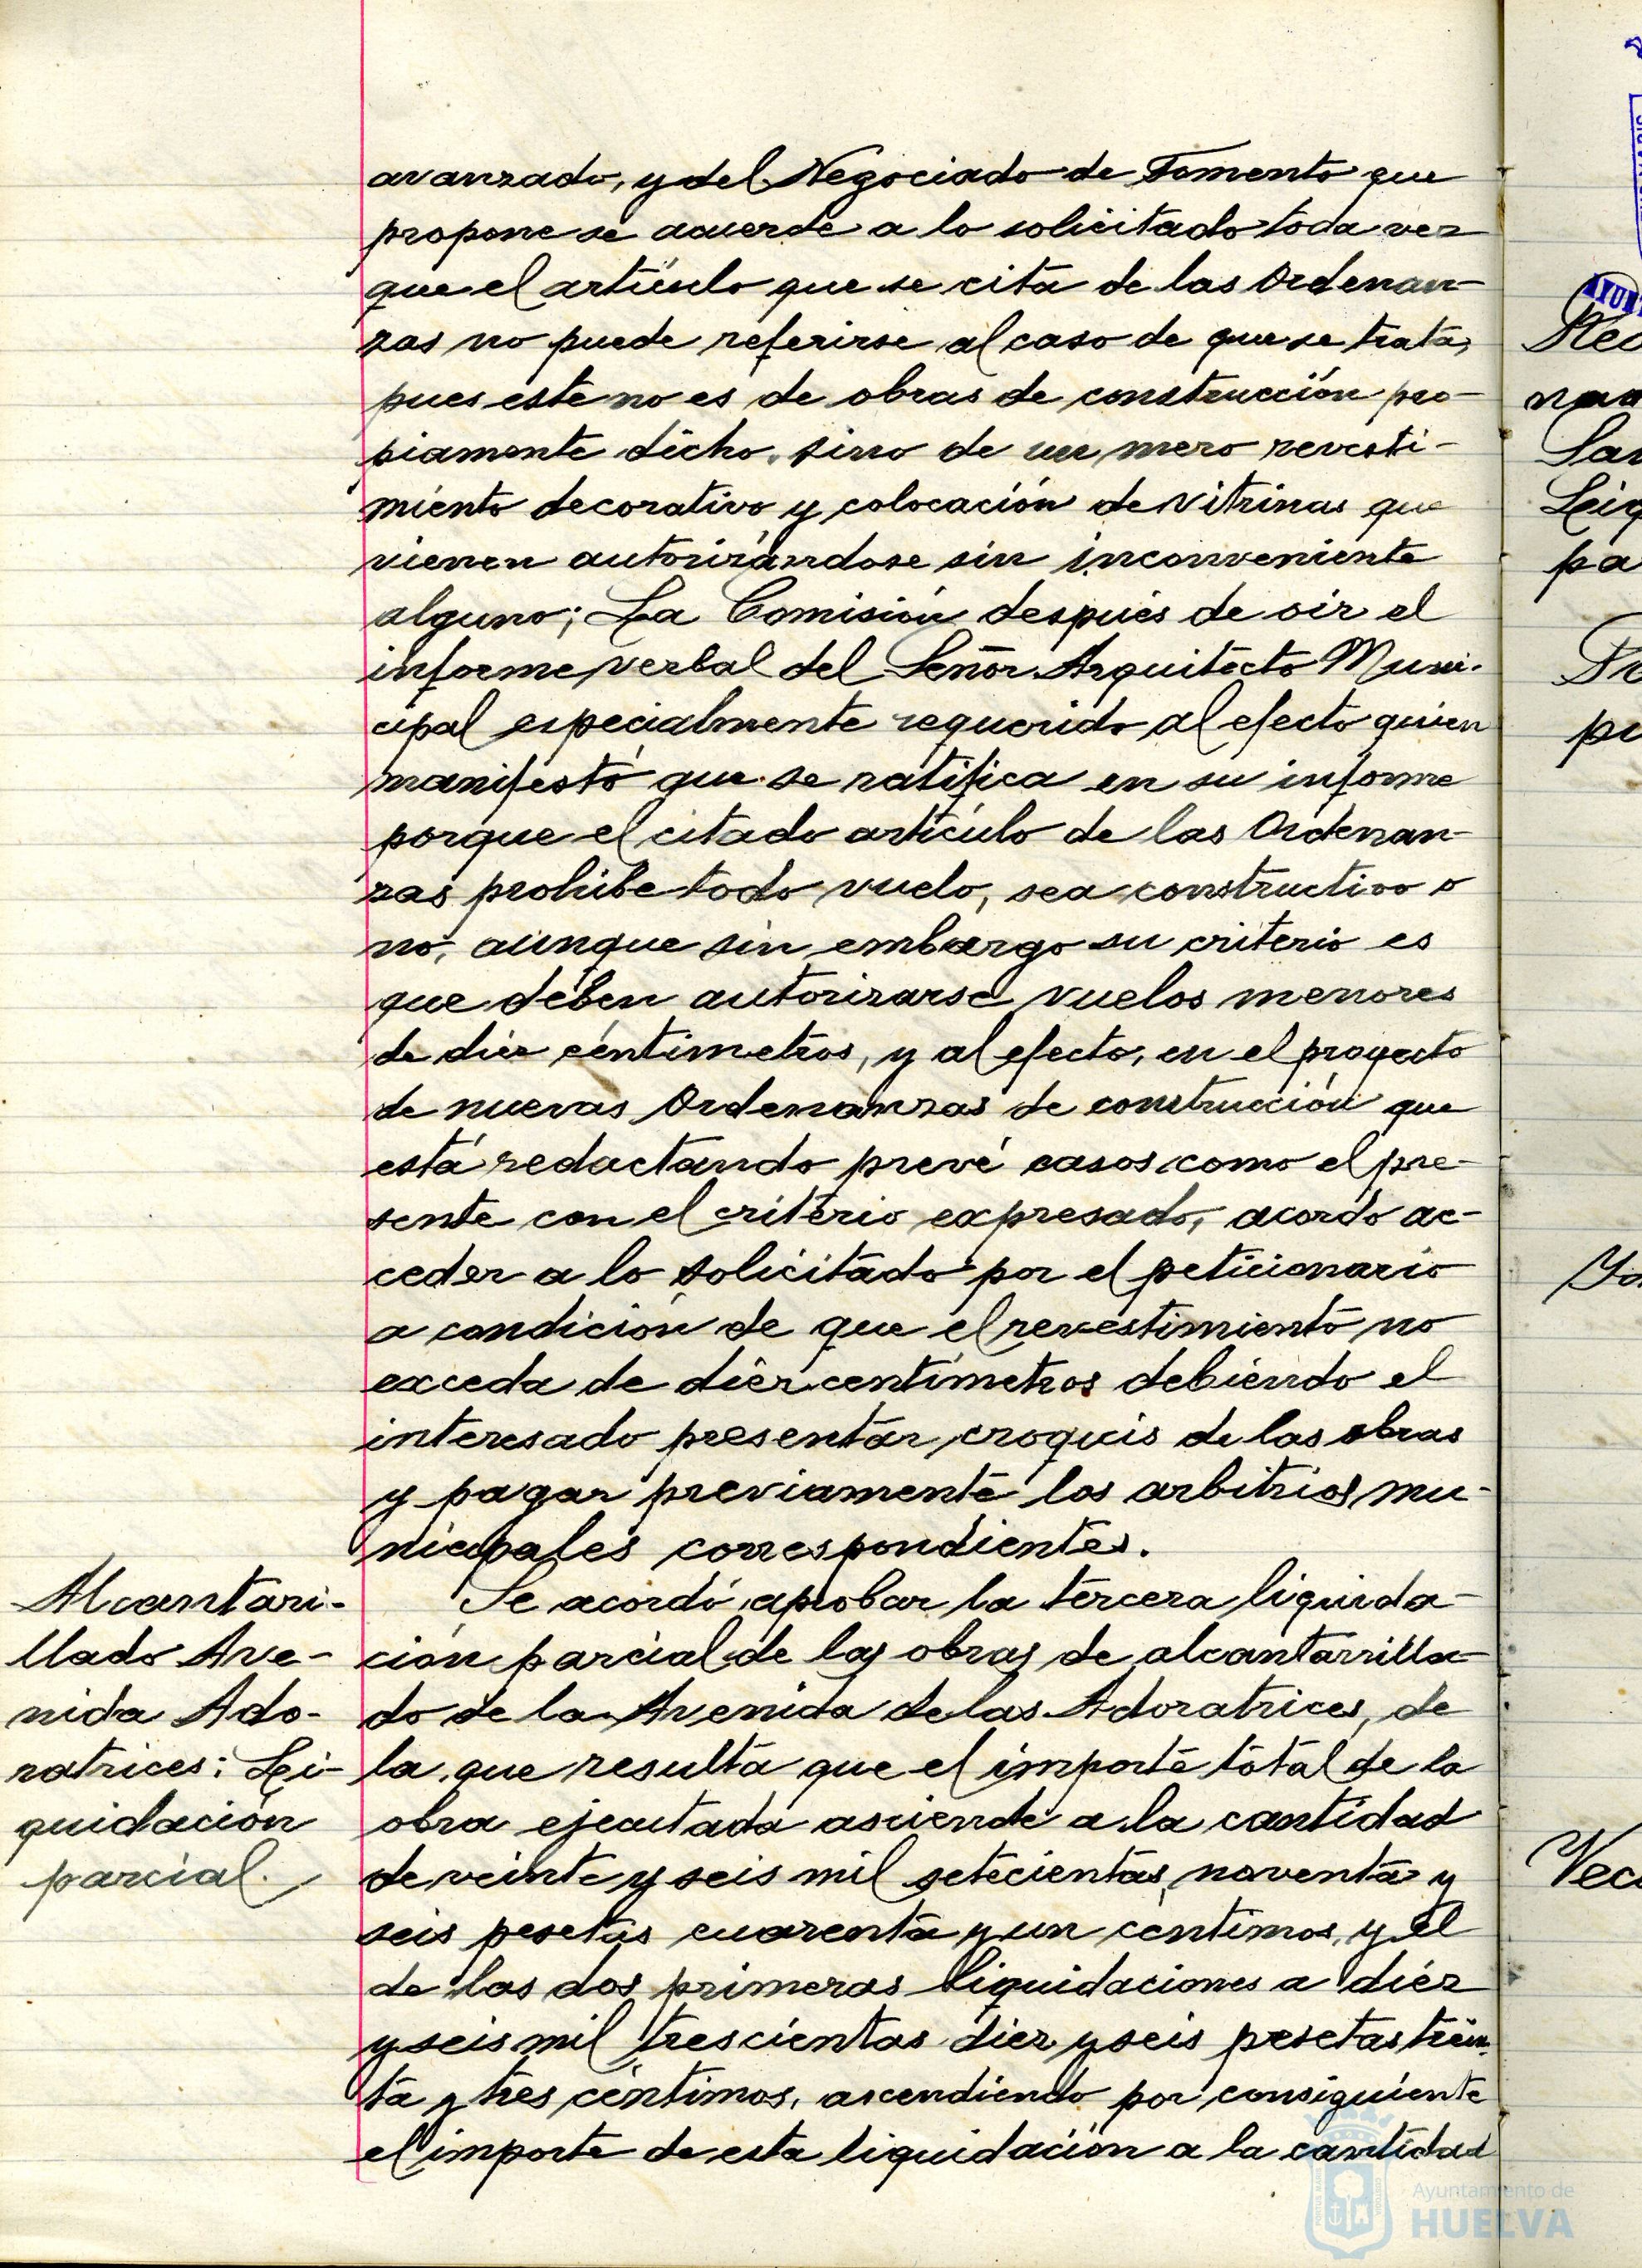 avanzado, y del Negociado de Fomento que
propone se acuerde a lo solicitado toda vez
que el artículo que se cita de las Ordenan-
zas no puede referirse al caso de que se trata,
pues este no es de obras de construcción pro-
piamente dicho, sino de un mero revesti-
miento decorativo y colocación de vitrinas que
vienen autorizándose sin inconveniente
alguno; La Comisión después de oir el
informe verbal del Señor Arquitecto Muni-
cipal especialmente requerido al efecto quien
manifestó que se ratifica en su informe
porque el citado artículo de las Ordenan-
zas prohibe todo vuelo, sea constructivo o
no, aunque sin embargo su criterio es
que deben autorizarse vuelos menores
de diez centímetros, y al efecto, en el proyecto
de nuevas Ordenanzas de construcción que
está redactando prevé casos como el pre-
sente con el criterio expresado, acordó ac-
ceder a lo solicitado por el peticionario
a condición de que el revestimiento no
exceda de diez centímetros debiendo el
interesado presentar croquis de las obras
y pagar previamente los arbitrios mu-
nicipales correspondientes.
Alcantari-
llado Ave-
nida Ado-
ratrices: Li-
quidación
parcial.
Se acordó aprobar la tercera liquida-
ción parcial de las obras de alcantarilla-
do de la Avenida de las Adoratrices, de
la que resulta que el importe total de la
obra ejecutada asciende a la cantidad
de veinte y seis mil setecientas noventa y
seis pesetas cuarenta y un céntimos, y el
de las dos primeras liquidaciones a diez
y seis mil trescientas diez y seis pesetas trein-
ta y tres céntimos, ascendiendo por consiguiente
el importe de esta liquidación a la cantidad
Ayuntamiento de
HUELVA